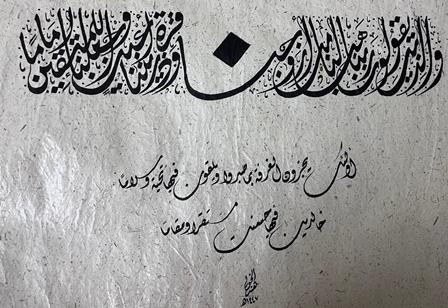 والذين يقولون ربنا هب لنا من أزواجنا وذرياتنا قرة أعين واجعلنا للمتقين إماما
أولئك يجزون الغرفة بما صبروا ويلقون فيها تحية وسلاما
خالدين فيها حسنت مستقرا ومقاما